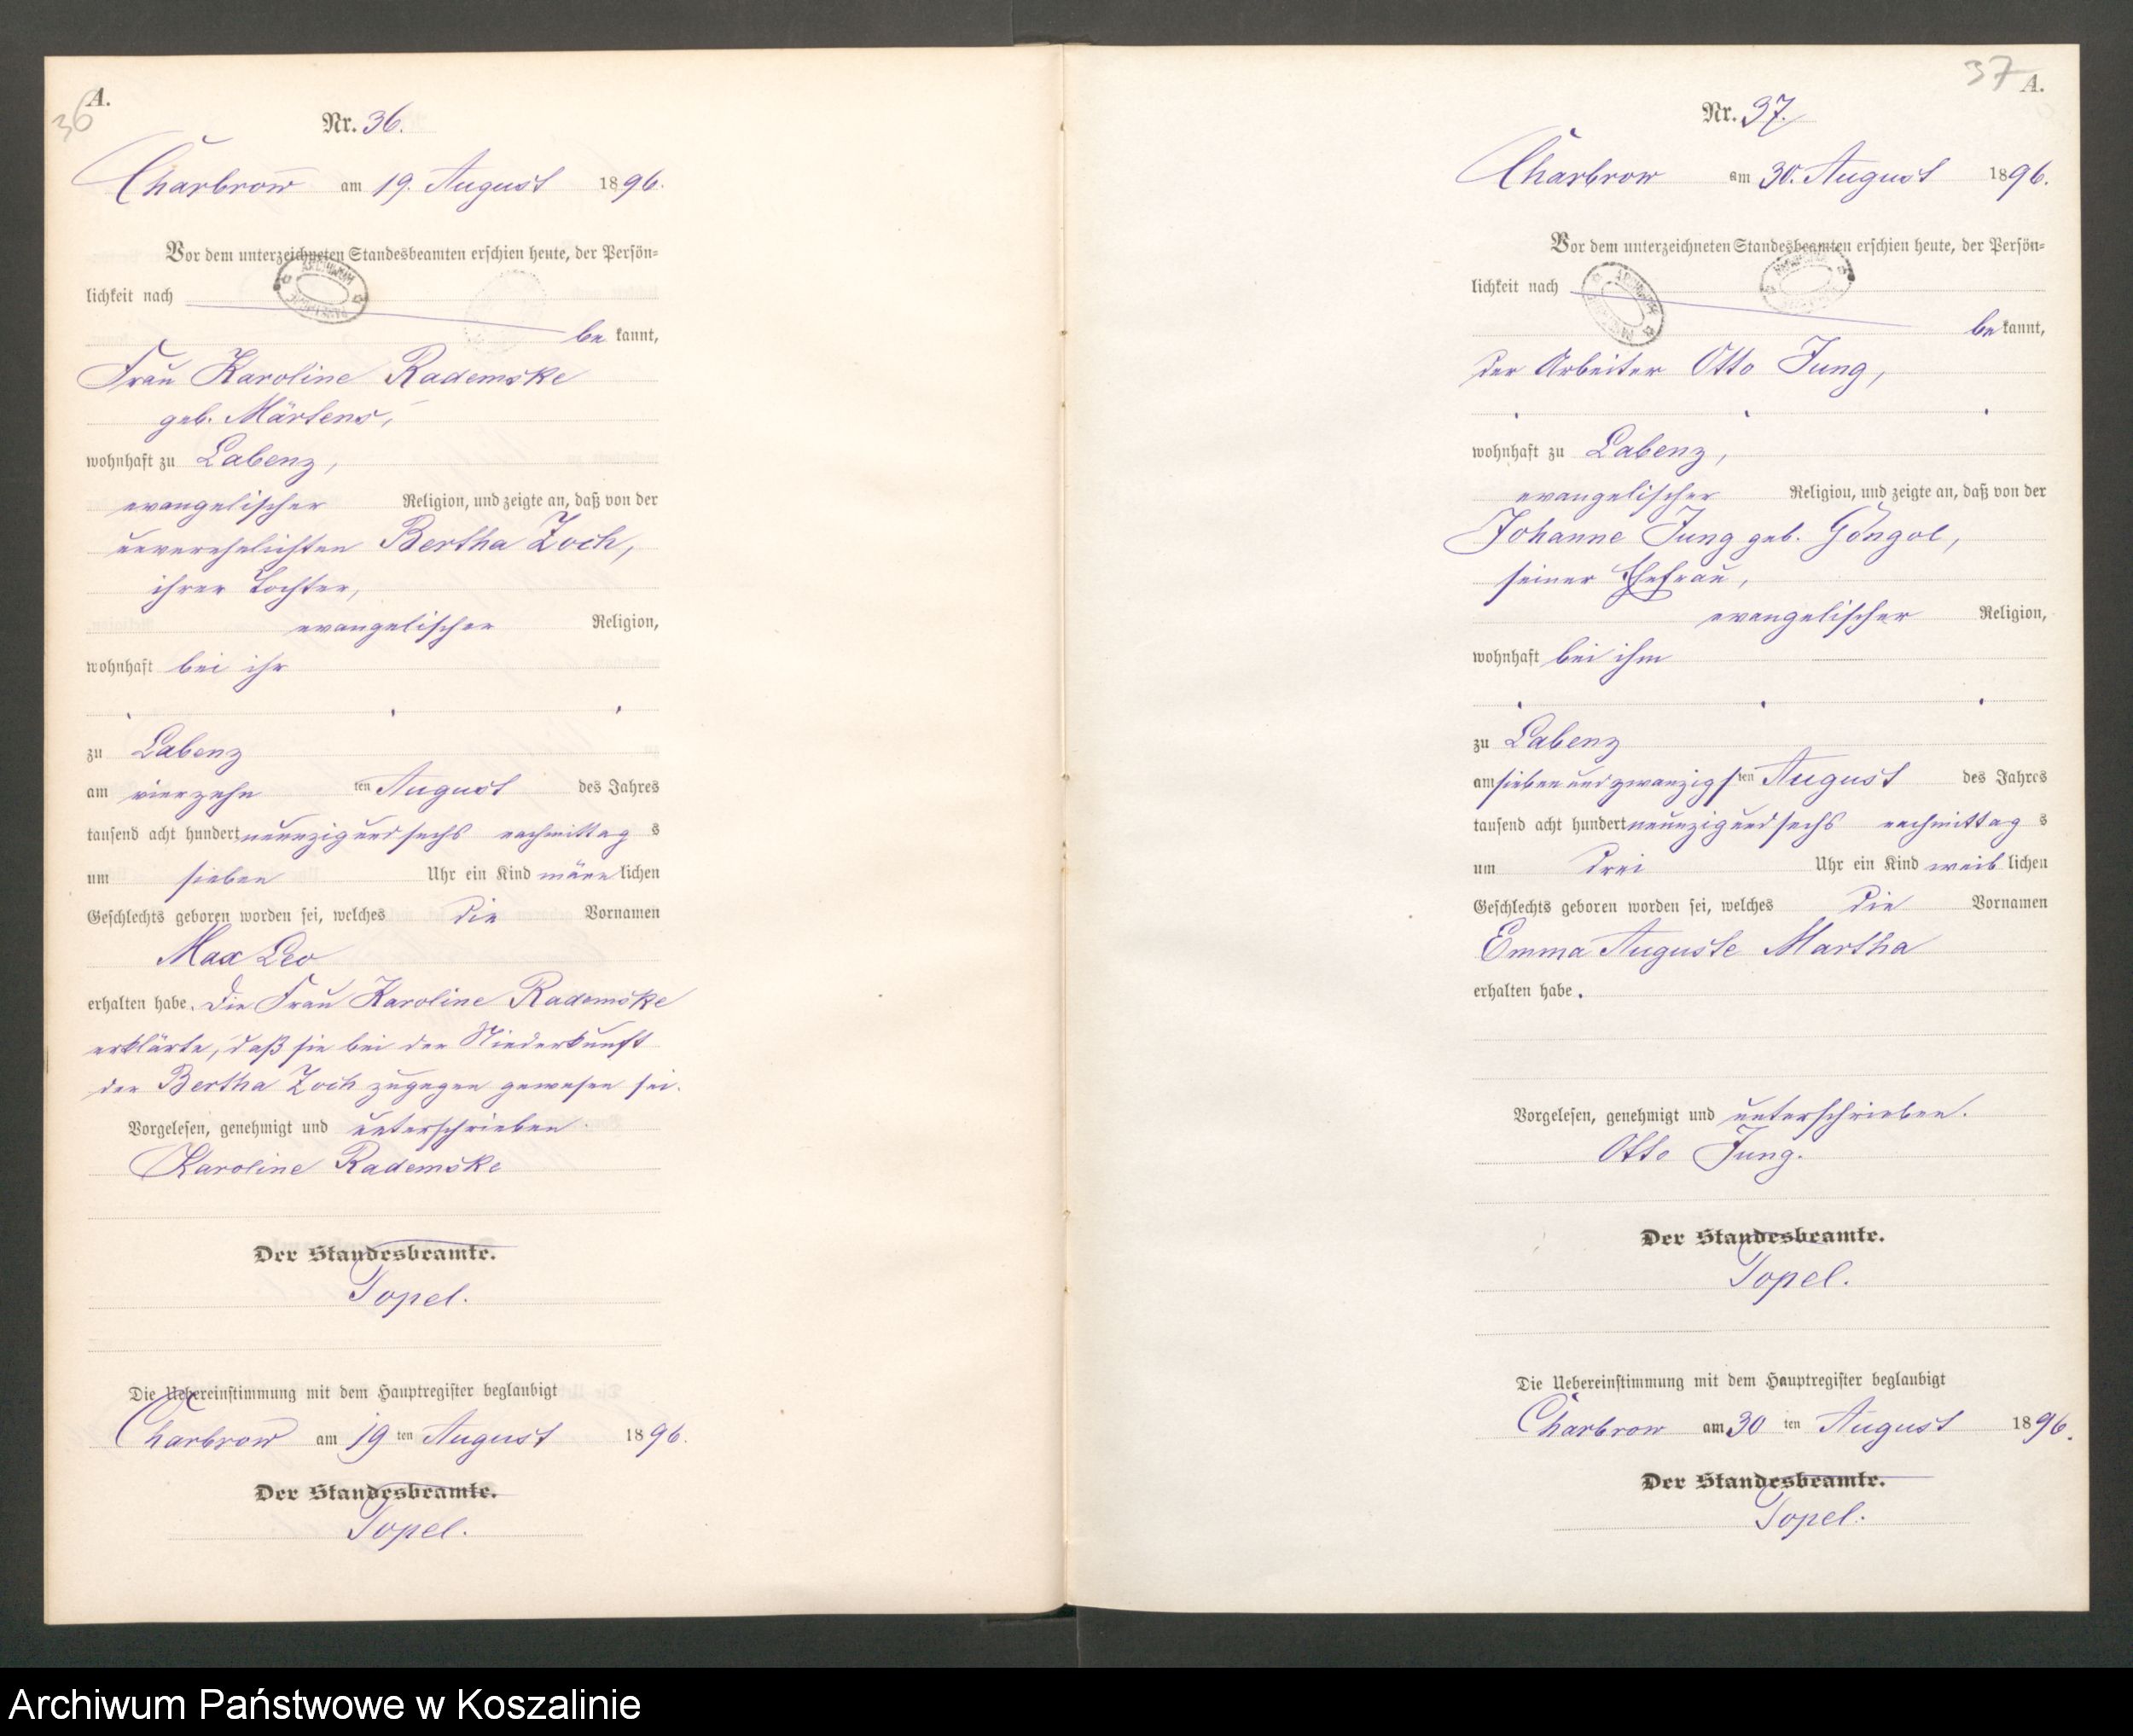 A.
36
Nr. 36.
Charbrow am 19. August 1896.
Vor dem unterzeichneten Standesbeamten erschien heute, der Persön-
lichkeit nach
bekannt,
Frau Karoline Rademske
geb. Märtens,
wohnhaft zu Labenz,
evangelischer Religion, und zeigte an, daß von der
unverehelichten Bertha Zoch,
ihrer Tochter,
evangelischer Religion,
wohnhaft bei ihr
zu Labenz
am vierzehn ten August des Jahres
tausend acht hundert neunzig und sechs nachmittags
um sieben Uhr ein Kind männlichen
Geschlechts geboren worden sei, welches die Vornamen
Max Leo
erhalten habe. Die Frau Karoline Rademske
erklärte, daß sie bei der Niederkunft
der Bertha Zoch zugegen gewesen sei.
Vorgelesen, genehmigt und unterschrieben.
Karoline Rademske
Der Standesbeamte.
Topel.
Die Uebereinstimmung mit dem Hauptregister beglaubigt
Charbrow am 19 ten August 1896.
Der Standesbeamte.
Topel.
37 A.
Nr. 37.
Charbrow am 30. August 1896.
Vor dem unterzeichneten Standesbeamten erschien heute, der Persön-
lichkeit nach
bekannt,
der Arbeiter Otto Jung,
wohnhaft zu Labenz,
evangelischer Religion, und zeigte an, daß von der
Johanne Jung geb. Göngol,
seiner Ehefrau,
evangelischer Religion,
wohnhaft bei ihm
zu Labenz
am sieben und zwanzigsten August des Jahres
tausend acht hundert neunzig und sechs nachmittags
um drei Uhr ein Kind weiblichen
Geschlechts geboren worden sei, welches die Vornamen
Emma Auguste Martha
erhalten habe.
Vorgelesen, genehmigt und unterschrieben.
Otto Jung.
Der Standesbeamte.
Topel.
Die Uebereinstimmung mit dem Hauptregister beglaubigt
Charbrow am 30 ten August 1896.
Der Standesbeamte.
Topel.
Archiwum Państwowe w Koszalinie